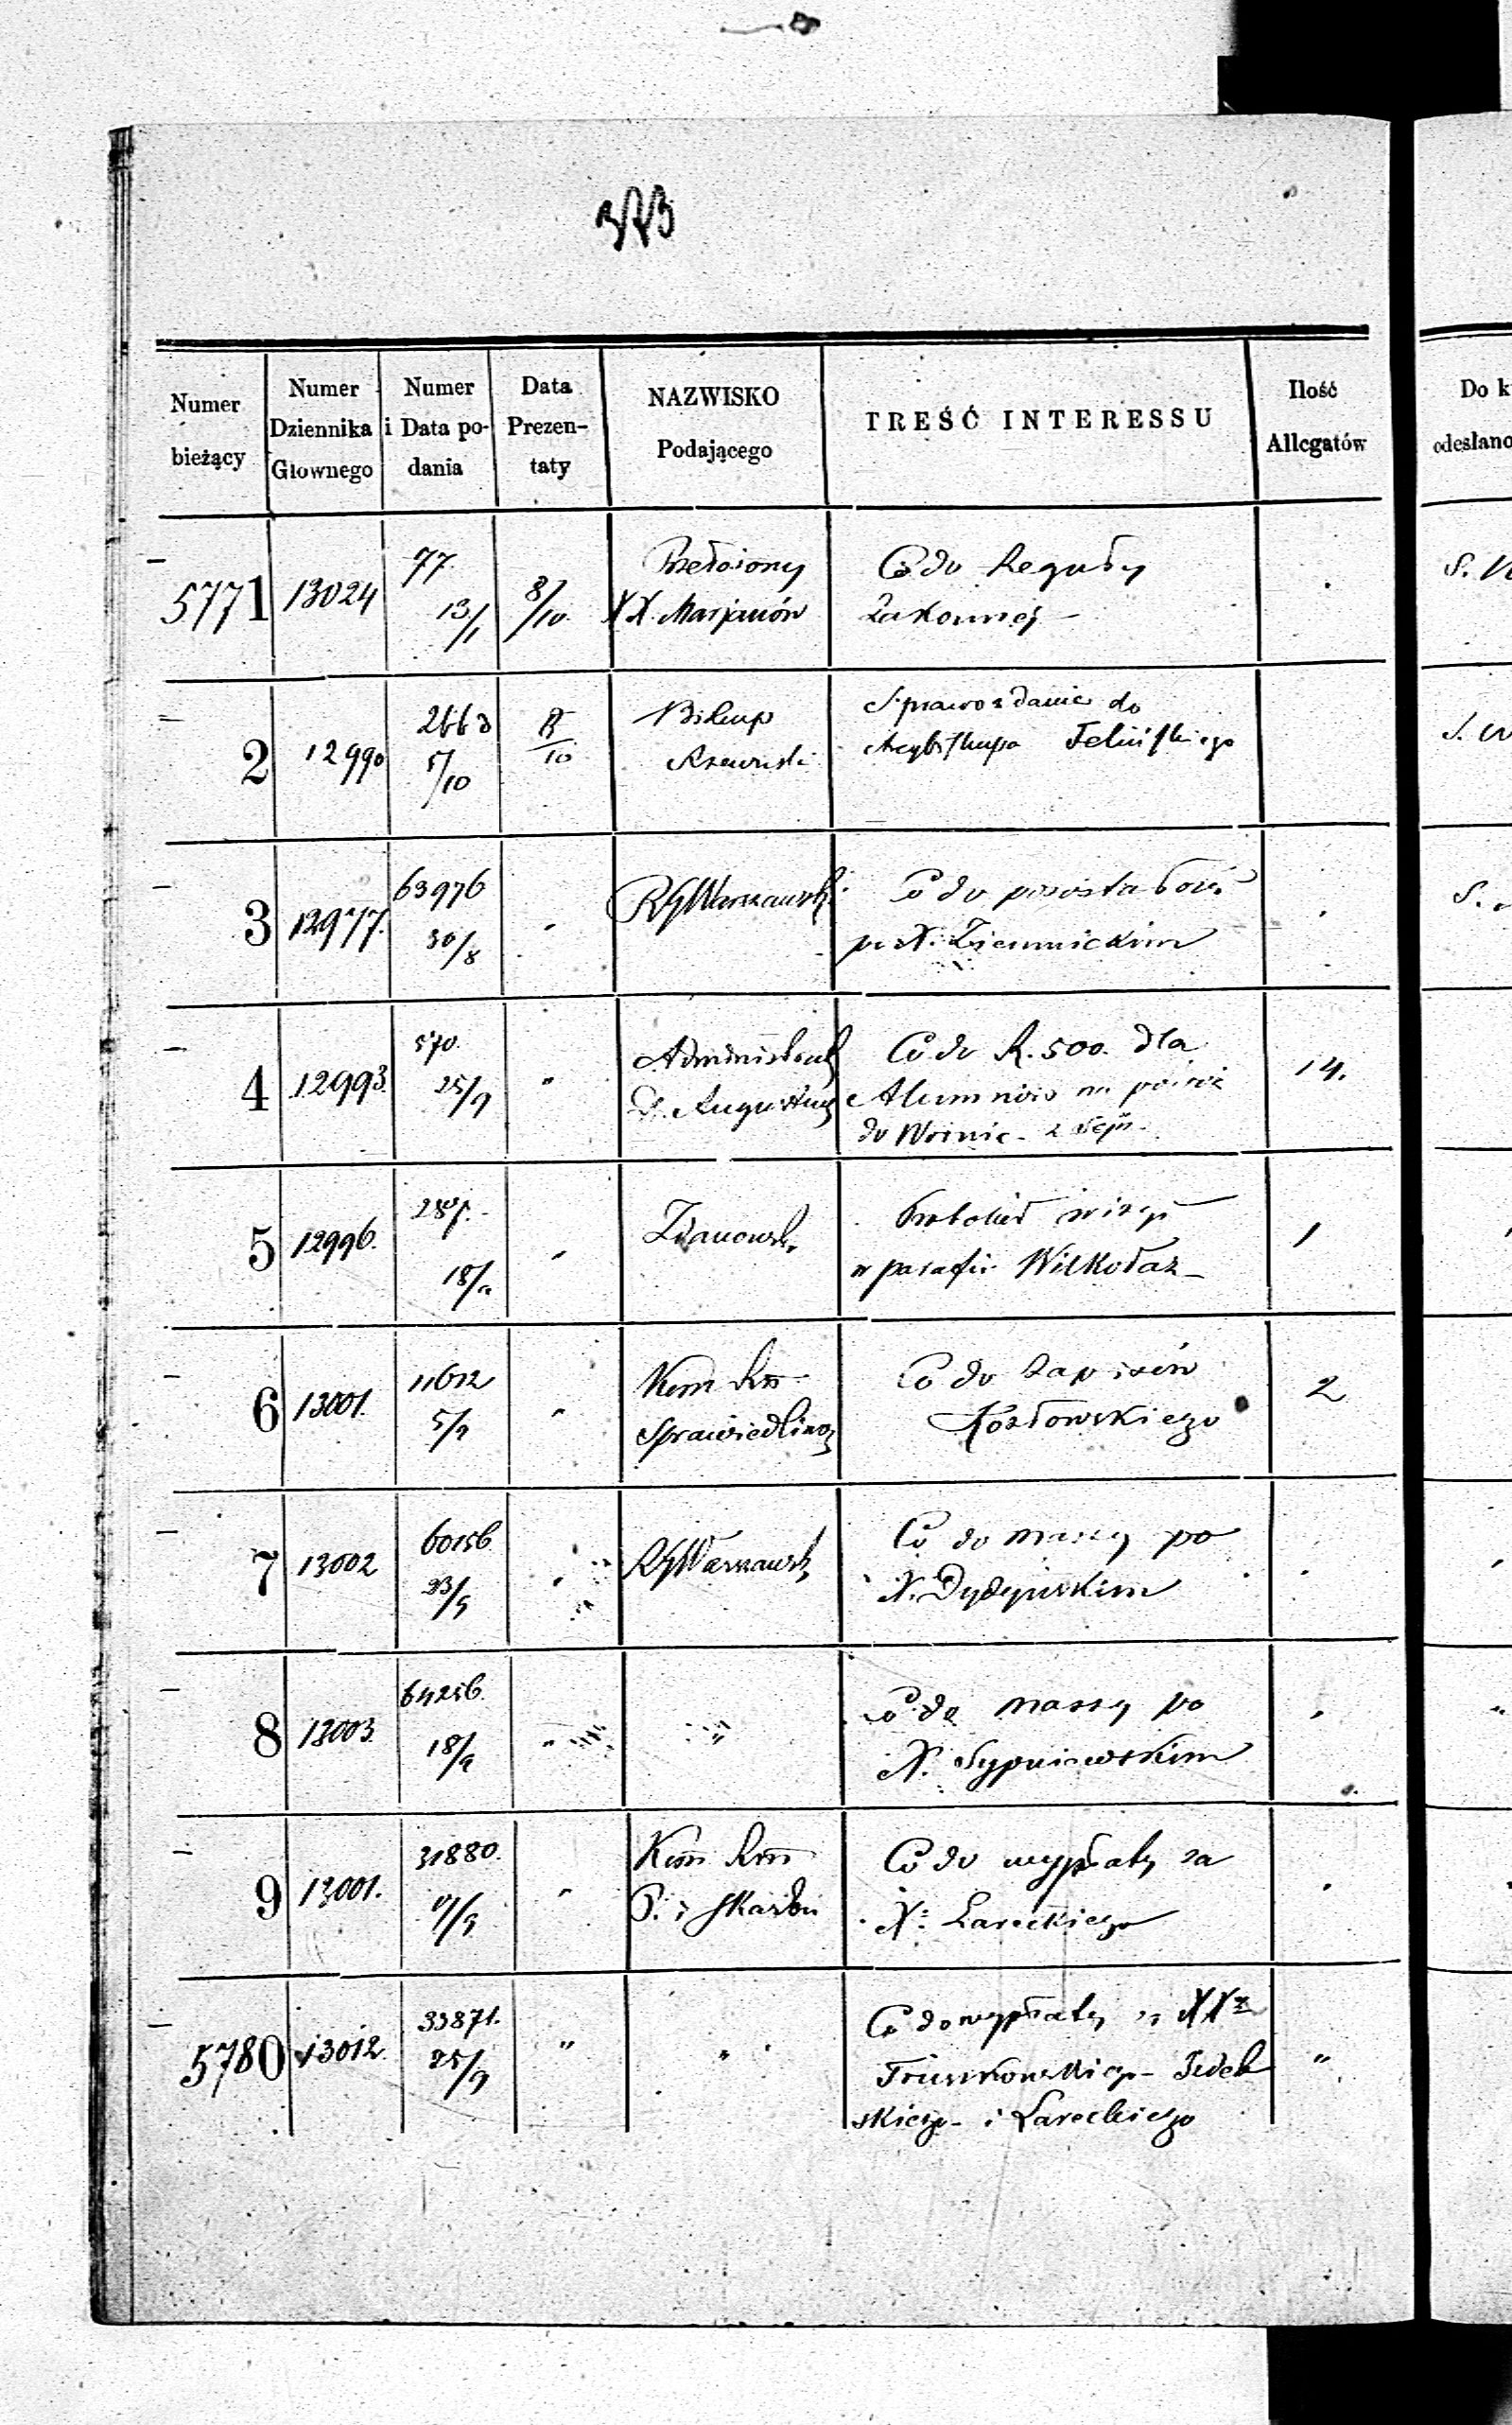 373
Numer bieżący
Numer Dziennika Głownego
Numer i Data podania
Data Prezentaty
NAZWISKO Podającego
TREŚĆ INTERESSU
Ilość Allegatów
Do k
odesłano
5771 13024 77. 13/1 8/10 Przełożony Co do Reguły
XX. Marjanów Zakonnej
2 12990 2663 5/10 8/10 Biskup Sprawozdanie do
Rzewuski Arcybiskupa Felińskiego
3 12977. 63976 30/8 " RGWarszawski Co do pozostałości
po X. Ziemnickim
4 12993. 570. 25/9 " Administrat Co do R. 500. dla 14.
D. Augustows Alumnów na
do z Sejn
5 12996. 18/9 " Zdanowski 1
w parafii Wilkołaz
6 13001. 11612 5/9 " Kom Rzą Co do zapisów 2
Sprawiedliwoś Kozłowskiego
7 13002 60156 23/9 " RGWarszawsk Co do massy po
X. Dydyńskim
8 13003. 64256. 18/9 " " Co do massy po
X. Sypniewskim
9 13001. 31880. " Kom Rzą Co do wypłaty za
P. i Skarbu X. Lareckiego
5780 13012. 33871. 25/9 " " Co do wypłaty XX "
skiego i Lareckiego